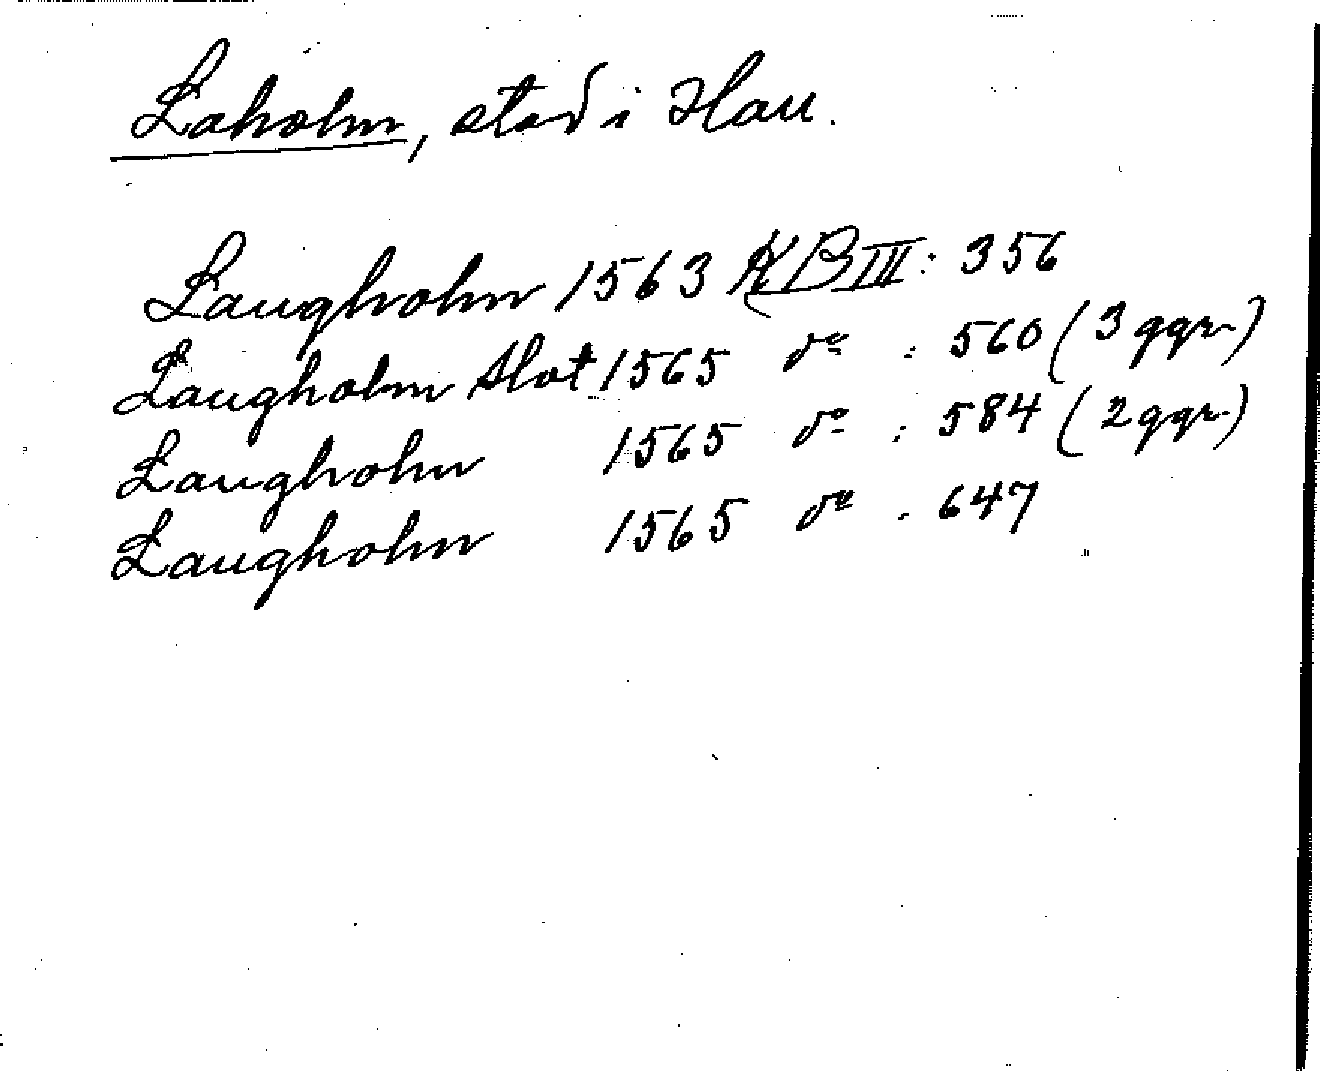 Laholm, stad i Hall.
Laugholm 1563 KB III: 356
Laugholm Slot 1565 do : 560 (3 ggr)
Laugholm 1565 do : 584 (2 ggr)
Laugholm 1565 do : 647